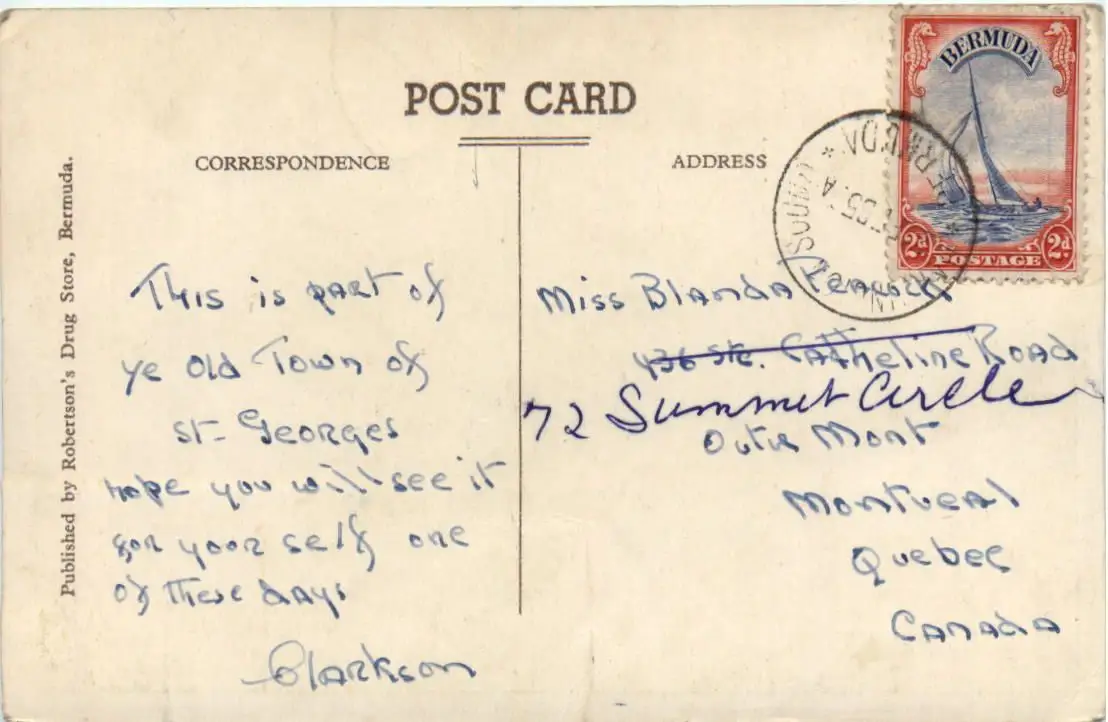 POST CARD
CORRESPONDENCE
ADDRESS
Published by Robertson's Drug Store, Bermuda.
BERMUDA
2d POSTAGE 2d
This is part of
ye Old Town of
St-Georges
hope you will see it
for your self one
of these days
Clarkson
Miss Blanda Peacock
436 Ste. Catherine Road
72 Summit Circle
Outre Mont
Montreal
Quebec
Canada